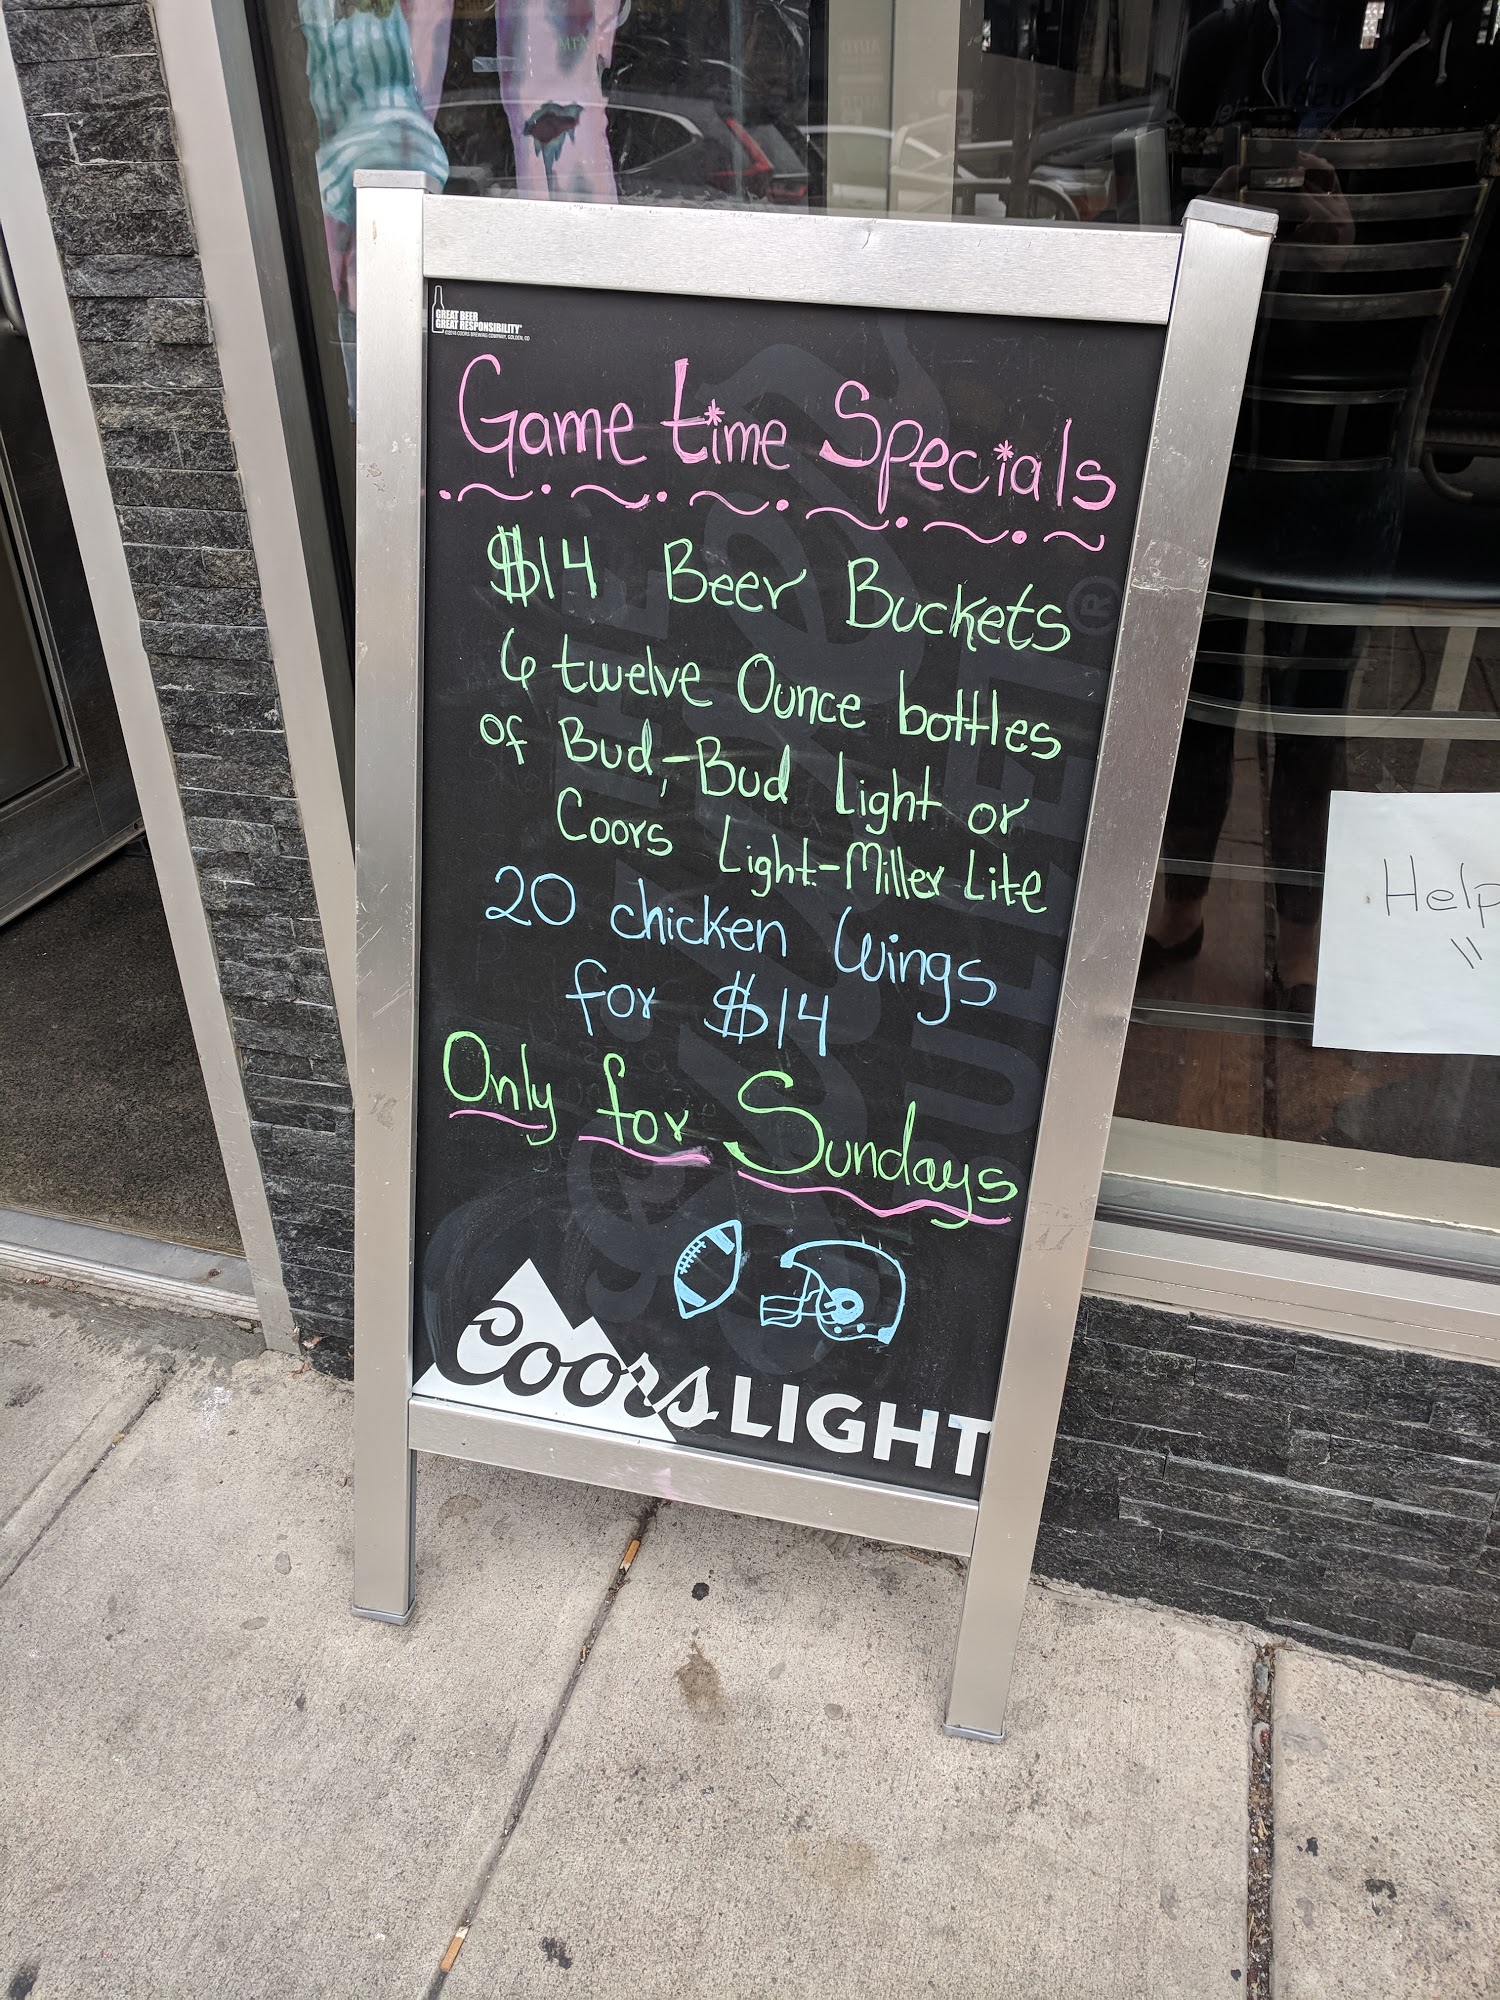 GREAT BEER
GREAT RESPONSIBILITY®
Game time Specials
$14 Beer Buckets
6 twelve Ounce bottles
of Bud,-Bud Light or
Coors Light-Miller Lite
20 chicken Wings
for $14
Only for Sundays
Coors LIGHT
Help